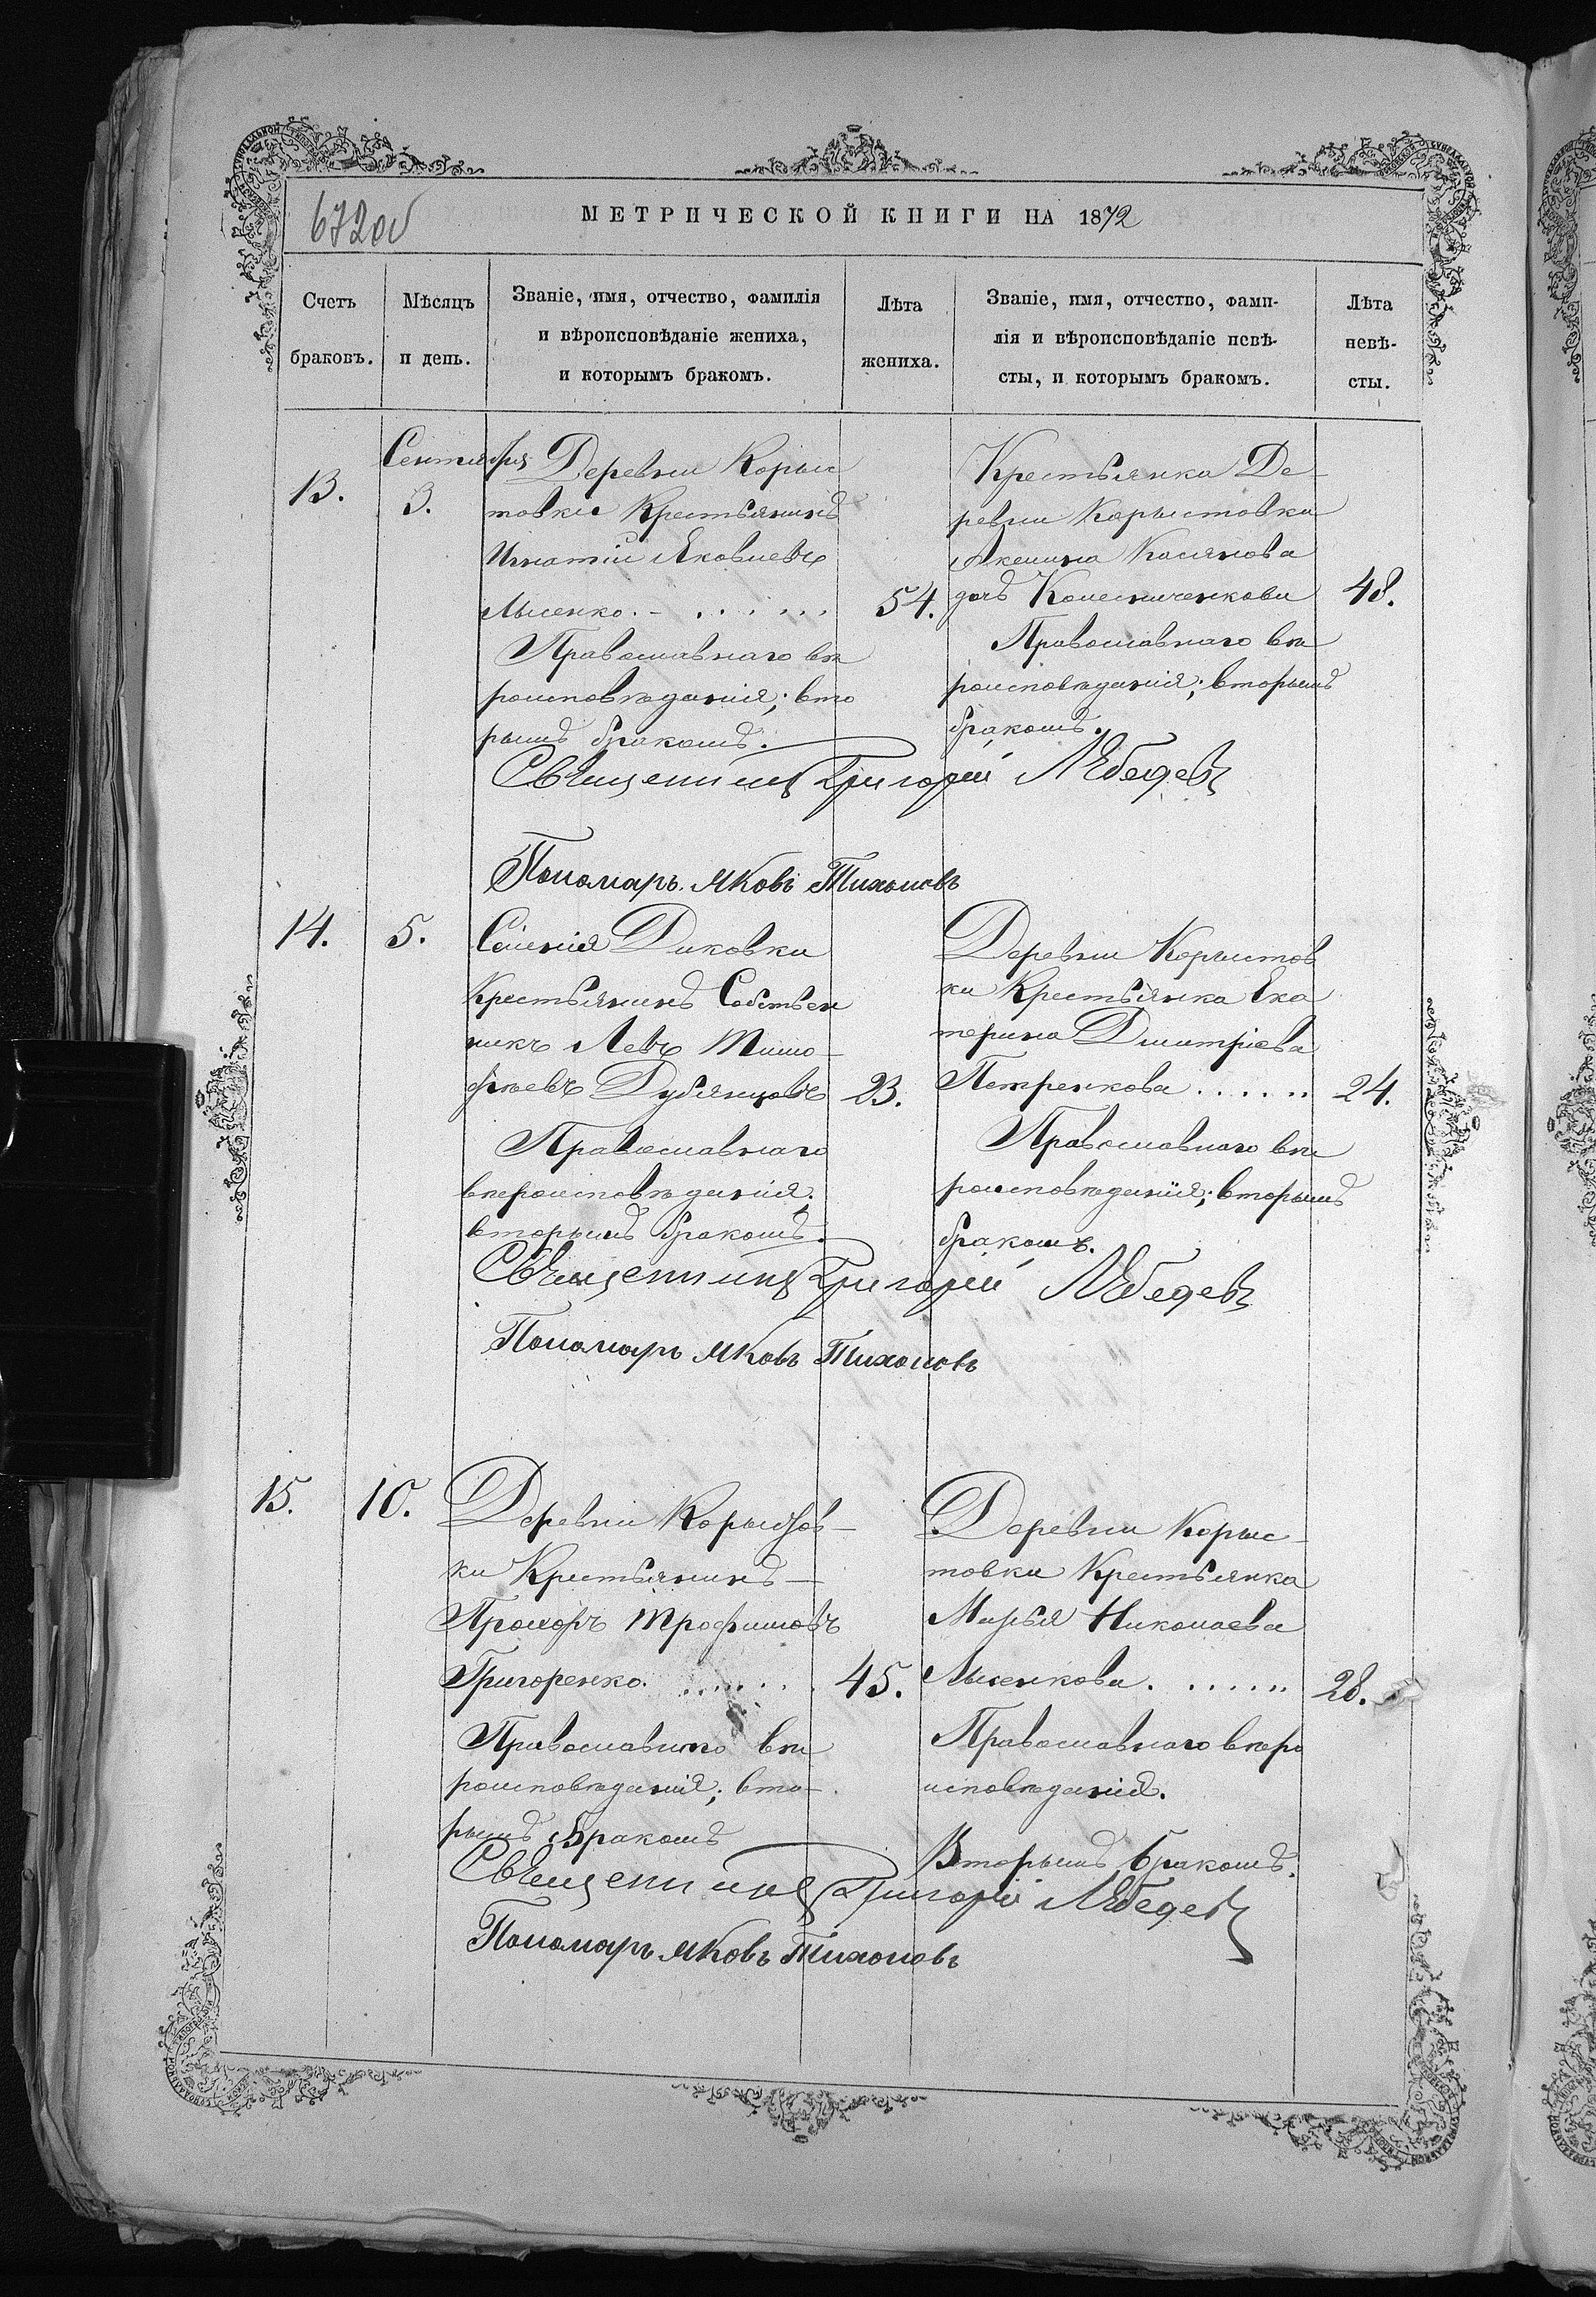 672об
МЕТРИЧЕСКОЙ КНИГИ НА 1872
Счетъ браковъ.
Мѣсяцъ и день.
Званіе, имя, отчество, фамилія
и вѣроисповѣданіе жениха,
и которымъ бракомъ.
Лѣта жениха.
Званіе, имя, отчество, фами-
лія и вѣроисповѣданіе невѣ-
сты, и которымъ бракомъ.
Лѣта невѣ-
сты.
13.
Сентября
3.
Деревни Корыс
товки Крестьянинъ
Игнатій Яковлевъ
Лысенко
Православнаго вѣ
роисповѣданія; вто
рымъ бракомъ.
54.
Крестьянка Де
ревни Корыстовки
Акелина Касянова
дочь Колесниченкова
Православнаго вѣ
роисповѣданія; вторымъ
бракомъ.
48.
Священникъ Григорій Лебедевъ
Пономарь Яковъ Тихоновъ
14.
5.
Селенія Диковки
Крестьянинъ Собствен
никъ Левъ Тимо-
фѣевъ Дубянцовъ
Православнаго
вѣроисповѣданія;
вторымъ бракомъ.
23.
Деревни Корыстов
ки Крестьянка Ека
терина Димитріева
Петренкова
Православнаго вѣ
роисповѣданія; вторымъ
бракомъ.
24.
Священникъ Григорій Лебедевъ
Пономарь Яковъ Тихоновъ
15.
10.
Деревни Корыстов-
ки Крестьянинъ
Прохоръ Трофимовъ
Григоренко
Православнаго вѣ
роисповѣданія; вто-
рымъ бракомъ
45.
Деревни Корыс-
товки Крестьянка
Марья Николаева
Лысенкова
Православнаго вѣро
исповѣданія.
Вторымъ бракомъ.
28.
Священникъ Григорій Лебедевъ
Пономарь Яковъ Тихоновъ